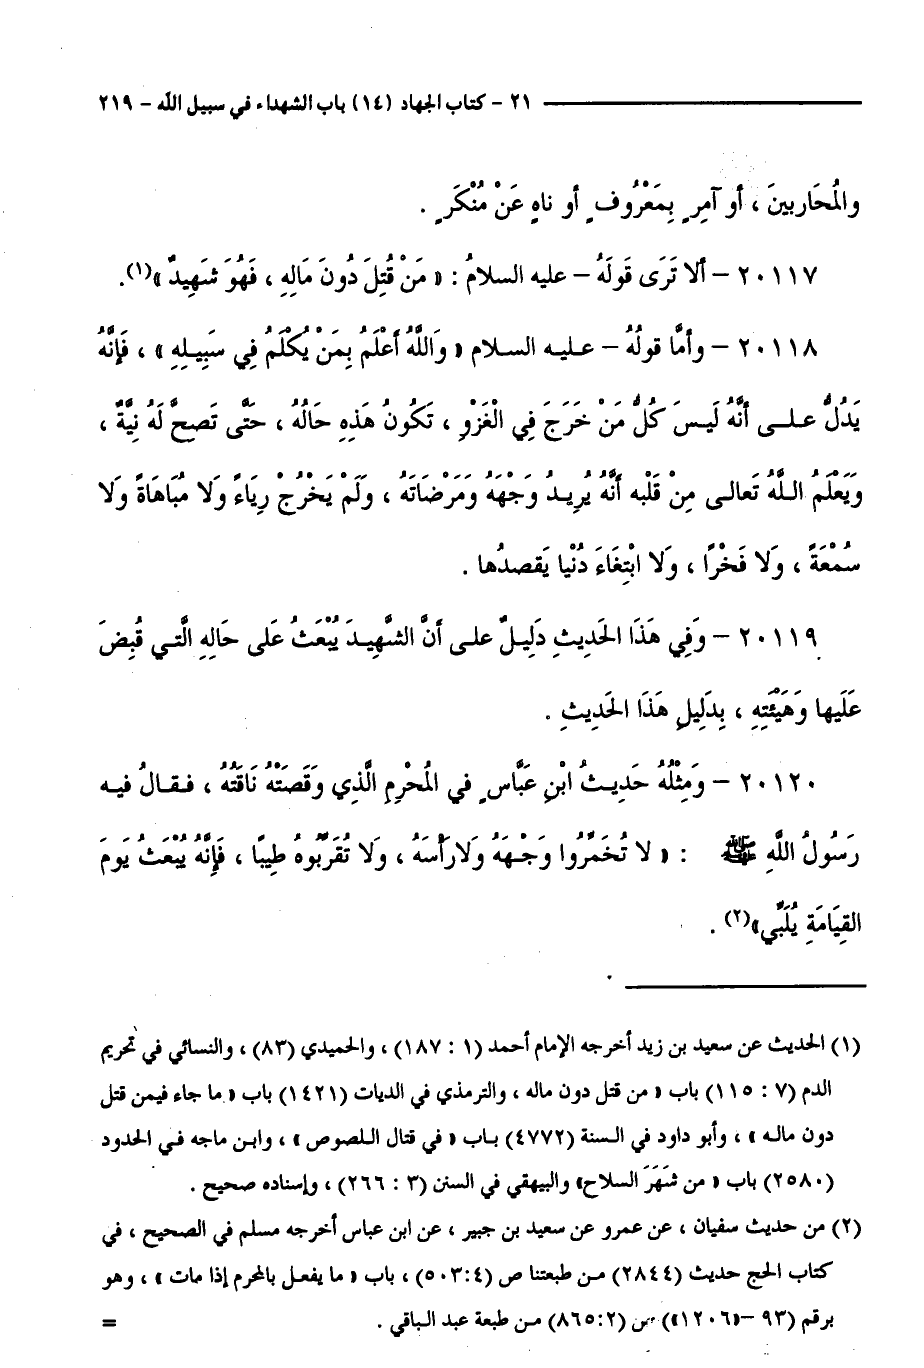 ٢١ - كتاب الجهاد (١٤) باب الشهداء في سبيل الله - ٢١٩
والمُحَاربينَ ، أو آمِرٍ بِمَعْرُوفٍ أو ناهٍ عَنْ مُنْكَرٍ .
٢٠١١٧ - ألا تَرَى قَولَهُ - عليه السلامُ : « مَنْ قُتِلَ دُونَ مَالِهِ ، فَهُوَ شَهِيدٌ »(١).
٢٠١١٨ - وأمَّا قولُهُ - عليه السلام « وَاللَّهُ أعْلَمُ بِمَنْ يُكْلَمُ فِي سَبِيلِهِ » ، فَإِنَّهُ
يَدُلُّ على أنَّهُ لَيسَ كُلُّ مَنْ خَرَجَ فِي الْغَزْوِ ، تَكُونُ هَذِهِ حَالُهُ ، حَتَّى تَصحَّ لَهُ نِيَّةٌ ،
وَيَعْلَمُ اللَّهُ تَعالى مِنْ قَلْبه أنَّهُ يُرِيدُ وَجْهَهُ وَمَرْضَاتَهُ ، وَلَمْ يَخْرُجْ رِيَاءً وَلا مُبَاهَاةً وَلا
سُمْعَةً ، وَلا فَخْرًا ، وَلا ابْتِغَاءَ دُنْيا يَقصدُها .
٢٠١١٩ - وَفِي هَذَا الحَديثِ دَلِيلٌ على أنَّ الشَّهِيدَ يُبْعَثُ عَلى حَالِهِ الَّتي قُبِضَ
عَلَيها وَهَيْئَتِهِ ، بِدَلِيلِ هَذَا الحَدِيثِ .
٢٠١٢٠ - وَمِثْلُهُ حَدِيثُ ابْنِ عَبَّاسٍ في المُحْرِمِ الَّذِي وَقَصَتْهُ نَاقَتُهُ ، فقالُ فيه
رَسُولُ اللَّهِ ﷺ : « لا تُخَمِّرُوا وَجْهَهُ وَلارَأسَهُ ، وَلا تُقَرِّبُوهُ طيبًا ، فَإِنَّهُ يُبْعَثُ يَومَ
القِيَامَةِ يُلَبِّي»(٢) .
(١) الحديث عن سعيد بن زيد أخرجه الإمام أحمد (١ : ١٨٧) ، والحميدي (٨٣) ، والنسائي في تحريم
الدم (٧ : ١١٥) باب « من قتل دون ماله ، والترمذي في الديات (١٤٢١) باب « ما جاء فيمن قتل
دون ماله » ، وأبو داود في السنة (٤٧٧٢) باب « في قتال اللصوص » ، وابن ماجه في الحدود
(٢٥٨٠) باب « من شَهَرَ السلاح» والبيهقي في السنن (٣ : ٢٦٦) ، وإسناده صحيح .
(٢) من حديث سفيان ، عن عمرو عن سعيد بن جبير ، عن ابن عباس أخرجه مسلم في الصحيح ، في
كتاب الحج حديث (٢٨٤٤) من طبعتنا ص (٥٠٣:٤) ، باب « ما يفعل بالمحرم إذا مات » ، وهو
برقم (٩٣ -«١٢٠٦») ص (٨٦٥:٢) من طبعة عبد الباقي . =